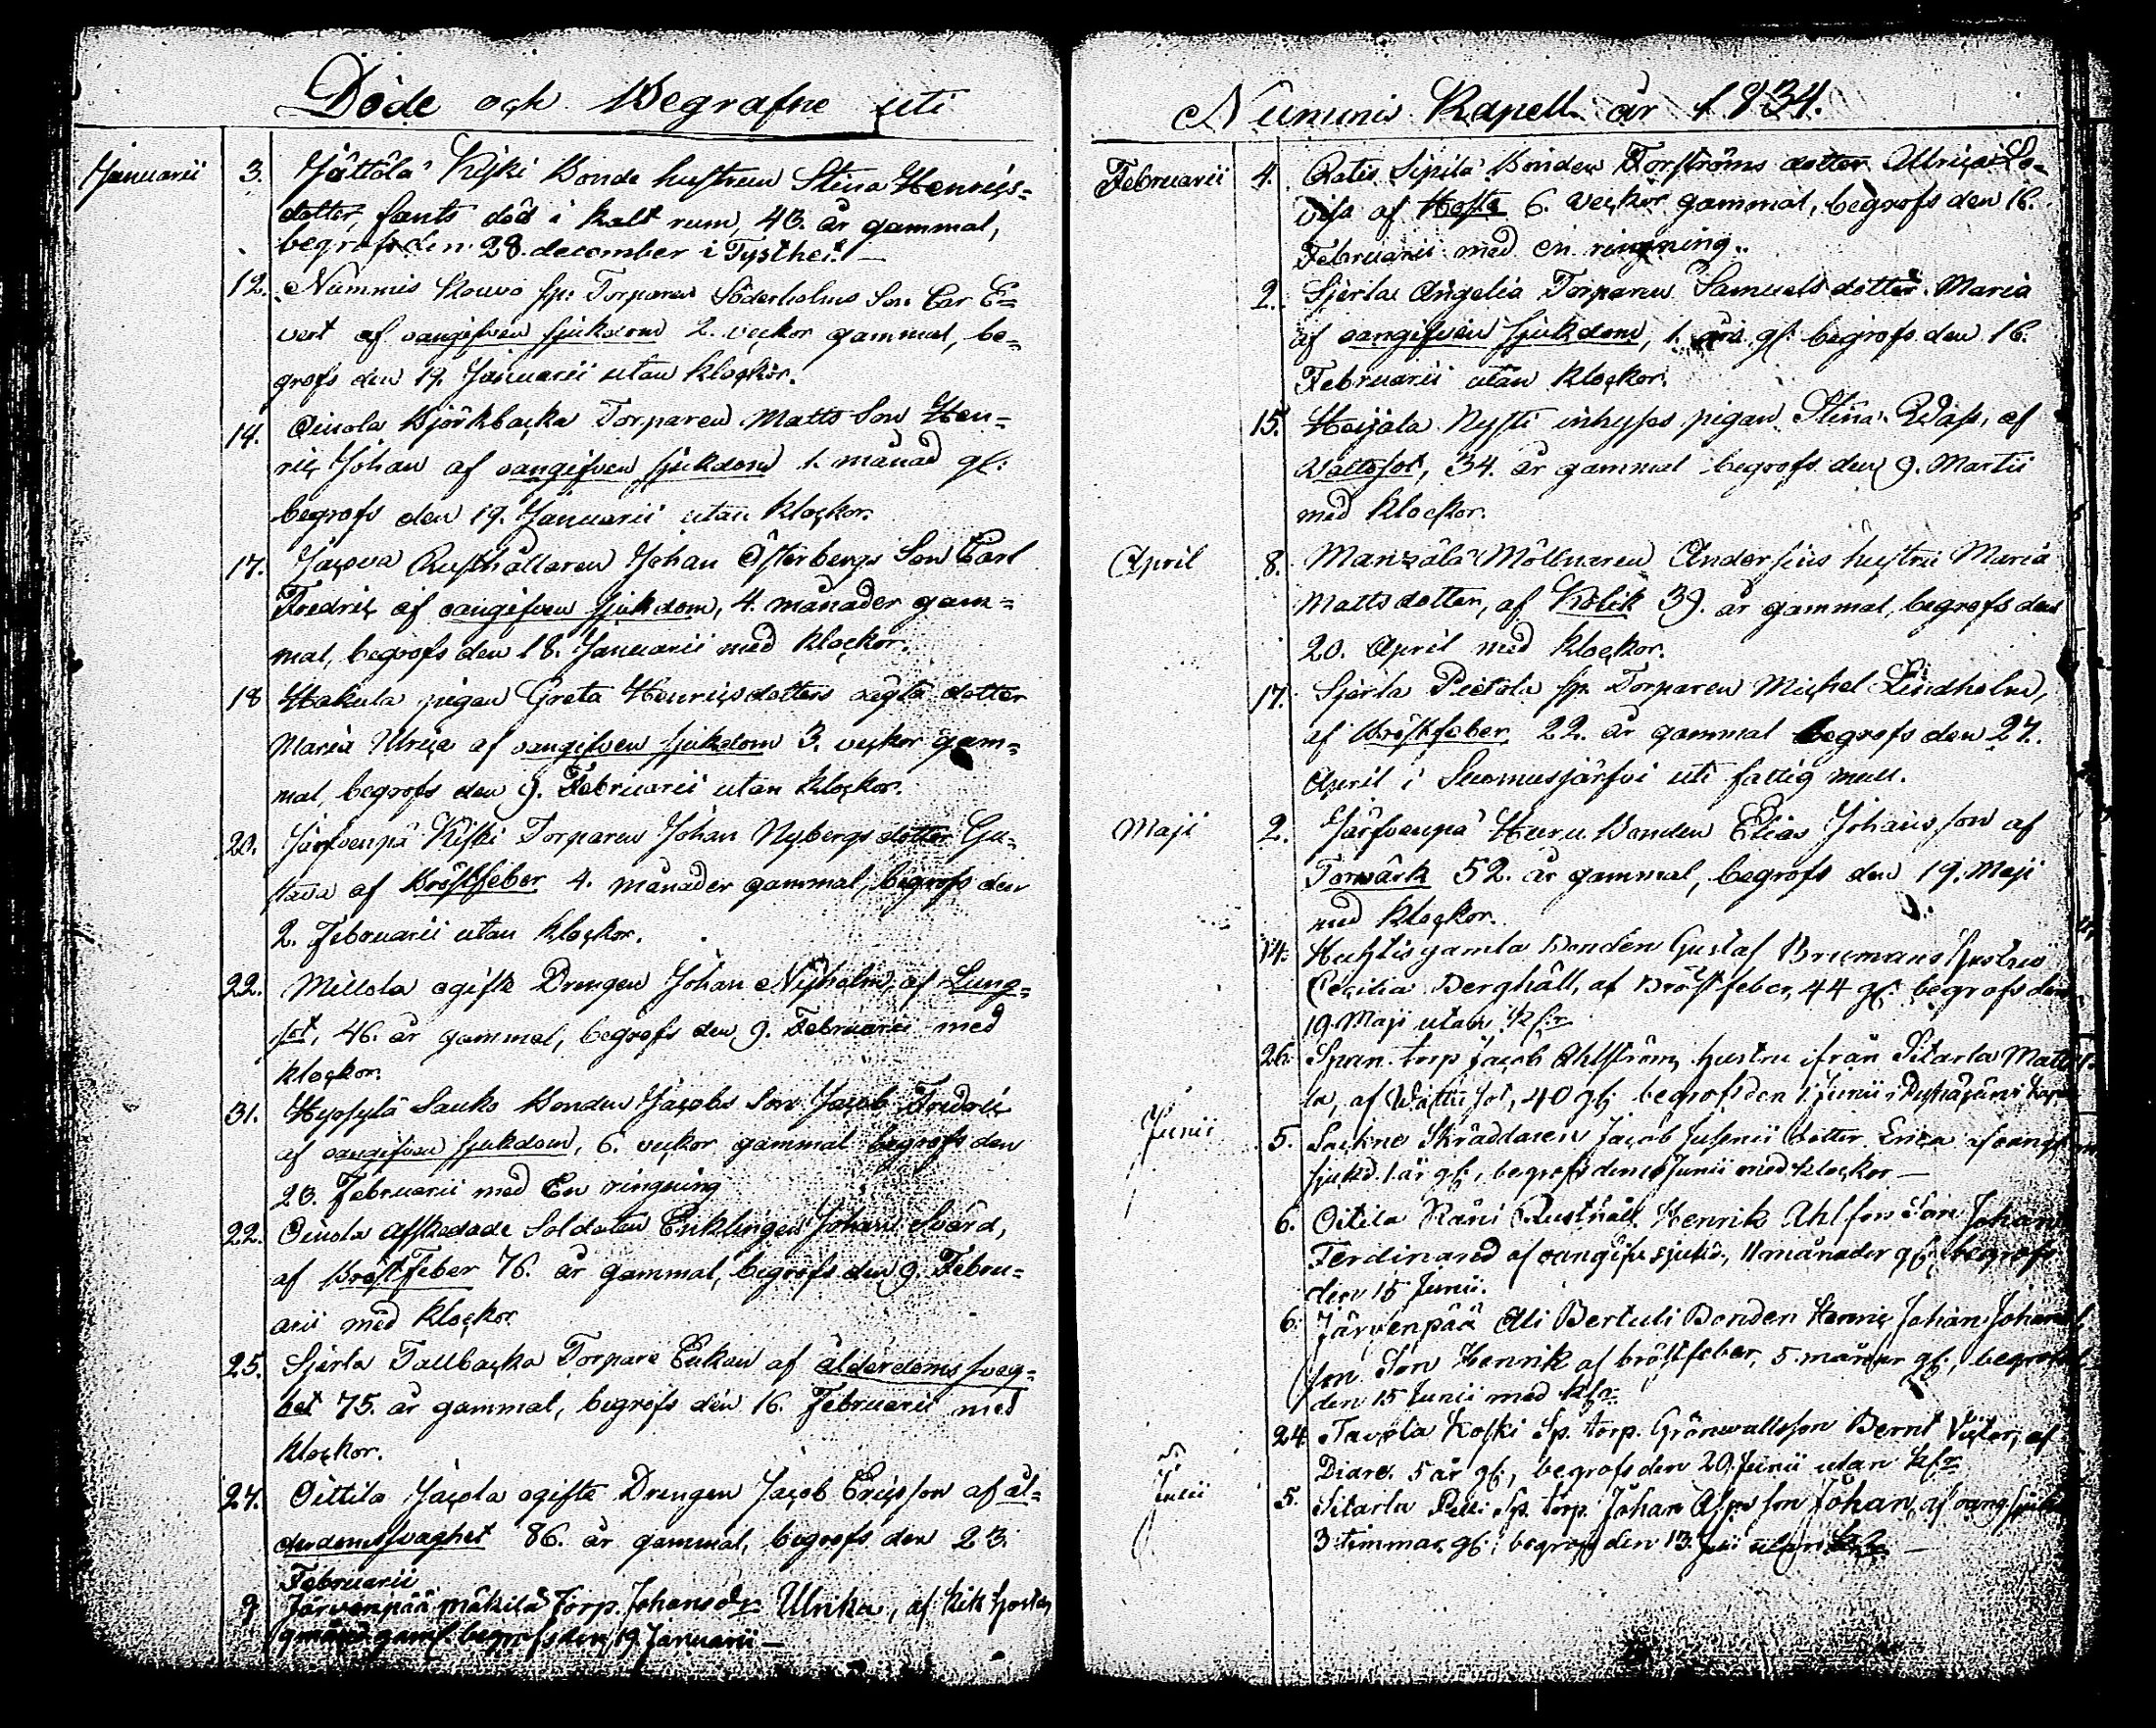 Döde och Begrafne uti
Januarii 3. Jättölä Kiski Bonde hustrun Stina Henrics-
dotter, fants död i kalt rum, 43. år gammal,
begrofs den 28. december i Tysthet. —
12. Nummis Kouvo sp: Torparen Söderholms Son Carl E=
vert af oangifven sjukdom 2. veckor gammal, be=
grofs den 19. Januarii utan klockor.
14. Oinola Björkbacka Torparen Matts Son Hen=
ric Johan af oangifven sjukdom 1. månad gl:
begrofs den 19. Januarii utan klockor.
17. Rusthållaren Johan Österbergs Son Carl
Fredric af oangifven sjukdom, 4. månader gam=
mal, begrofs den 18. Januarii med klockor.
18 Hakula pigan Greta Henricsdotters oägta dotter
Maria Ulrica af oangifven sjukdom 3. veckor gam=
mal, begrofs den 9. Februarii utan klockor.
20. Järfvenpä Kiski Torparen Johan Nybergs dotter Gu=
stava af Bröstfeber 4. månader gammal, begrofs den
2. Februarii utan klockor.
22. Millola ogifte Drengen Johan Nyholm, af Lung=
sot, 46. år gammal, begrofs den 9. Februarii med
klockor.
31. Hyrsylä Sauko Bonden Jacobs Son Jacob Fredric
af oangifven sjukdom, 6. veckor gammal begrofs den
23. Februarii med En ringning
22. Oinola Afskedade Soldaten Enklingen Johan Svärd,
af BröstFeber 76. år gammal, begrofs den 9. Febru=
arii med klockor.
25. Sjerla Tallbacka Torpare Enkan af ålderdoms svag=
het 75. år gammal, begrofs den 16. Februarii med
klockor.
27. Oittila Jacola ogifte Drengen Jacob Ericsson af ål=
derdomssvaghet 86. år gammal, begrofs den 23.
Februarii
9 Järvenpää mäkilä Torp. Johans dr Ulrika, af Kikhostan
9 månd gaml. begrofs den 19 Januarii —
Nummis Kapell år 1834.
Februarii 4. Sipilä Bonden Forströms dotter Ulrica Lo=
visa af Hosta 6. veckor gammal, begrofs den 16.
Februarii med en ringning.
2. Sjerla Torparen Samuels dotter Maria
af oangifven sjukdom, 1. års gl: begrofs den 16.
Februarii utan klockor.
15. Heijala Nysti inhyses pigan Stina af
Vattusot, 34. år gammal begrofs den 9. Martii
med klockor.
April 8. Möllnaren Andersins hustru Maria
Matts dotter, af Kolik 39. år gammal, begrofs den
20. April med klockor.
17. Sjerla Pietola sp. Torparen Michel Lindholm,
af Bröstfeber 22. år gammal begrofs den 27.
April i Suomusjärfvi uti fattig mull.
Maji 2. Järfvenpä Huru Bonden Elias Johansson af
Torrvärk 52. år gammal, begrofs den 19. Maji
med klockor.
14. Huhtis gamla Bonden Gustaf Brumans hustru
Cecilia Berghäll, af Bröstfeber, 44 gl: begrofs den
19. Maji utan kl:r
26. Span. torp Jacob Ahlström, hustru ifrån Sitarla Matti-
la, af Wattusot, 40 gl: begrofs den 1 Junii i Kapell
Junii 5. Skräddaren Jacob dotter Erica af oangifven
sjukd. 1 år gl:, begrofs den Junii med klockor —
6. Oitila Räni Rusthåll. Henrik Ahlfors Son Johan
Ferdinand af oangifv sjukd., 11 månader gl: begrofs
den 15 Junii.
6. Järvenpää Ali Bertuli Bonden Henric Johan Johans
son Son Henrik af bröstfeber, 5 månder gl:, begrofs
den 15 Junii med kl:r
24. Tavola Koski Sp. torp. Grönvalls son Bernt Victor, af
Diare. 5 år gl:, begrofs den 29. Junii utan kl:r
Julii 5. Sitarla Pelli Sp. torp. Johan son Johan, af oang. sjukd
3 timmar gl:, begrofs den 13. Juli utan kl:r —